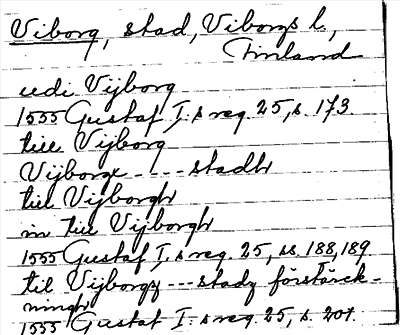 Viborg, stad, Viborgs l,
Finland
udi Vijborg
1555 Gustaf I:s reg. 25, s. 173.
till Vijborg
Vijborgx - - - - stadh
till Vijborgh
in till Vijborgh
1555 Gustaf I:s reg. 25, ss. 188, 189
til Vijborgz - - - stadz förstärck-
ningh
1555 Gustaf I:s reg. 25, s. 201.